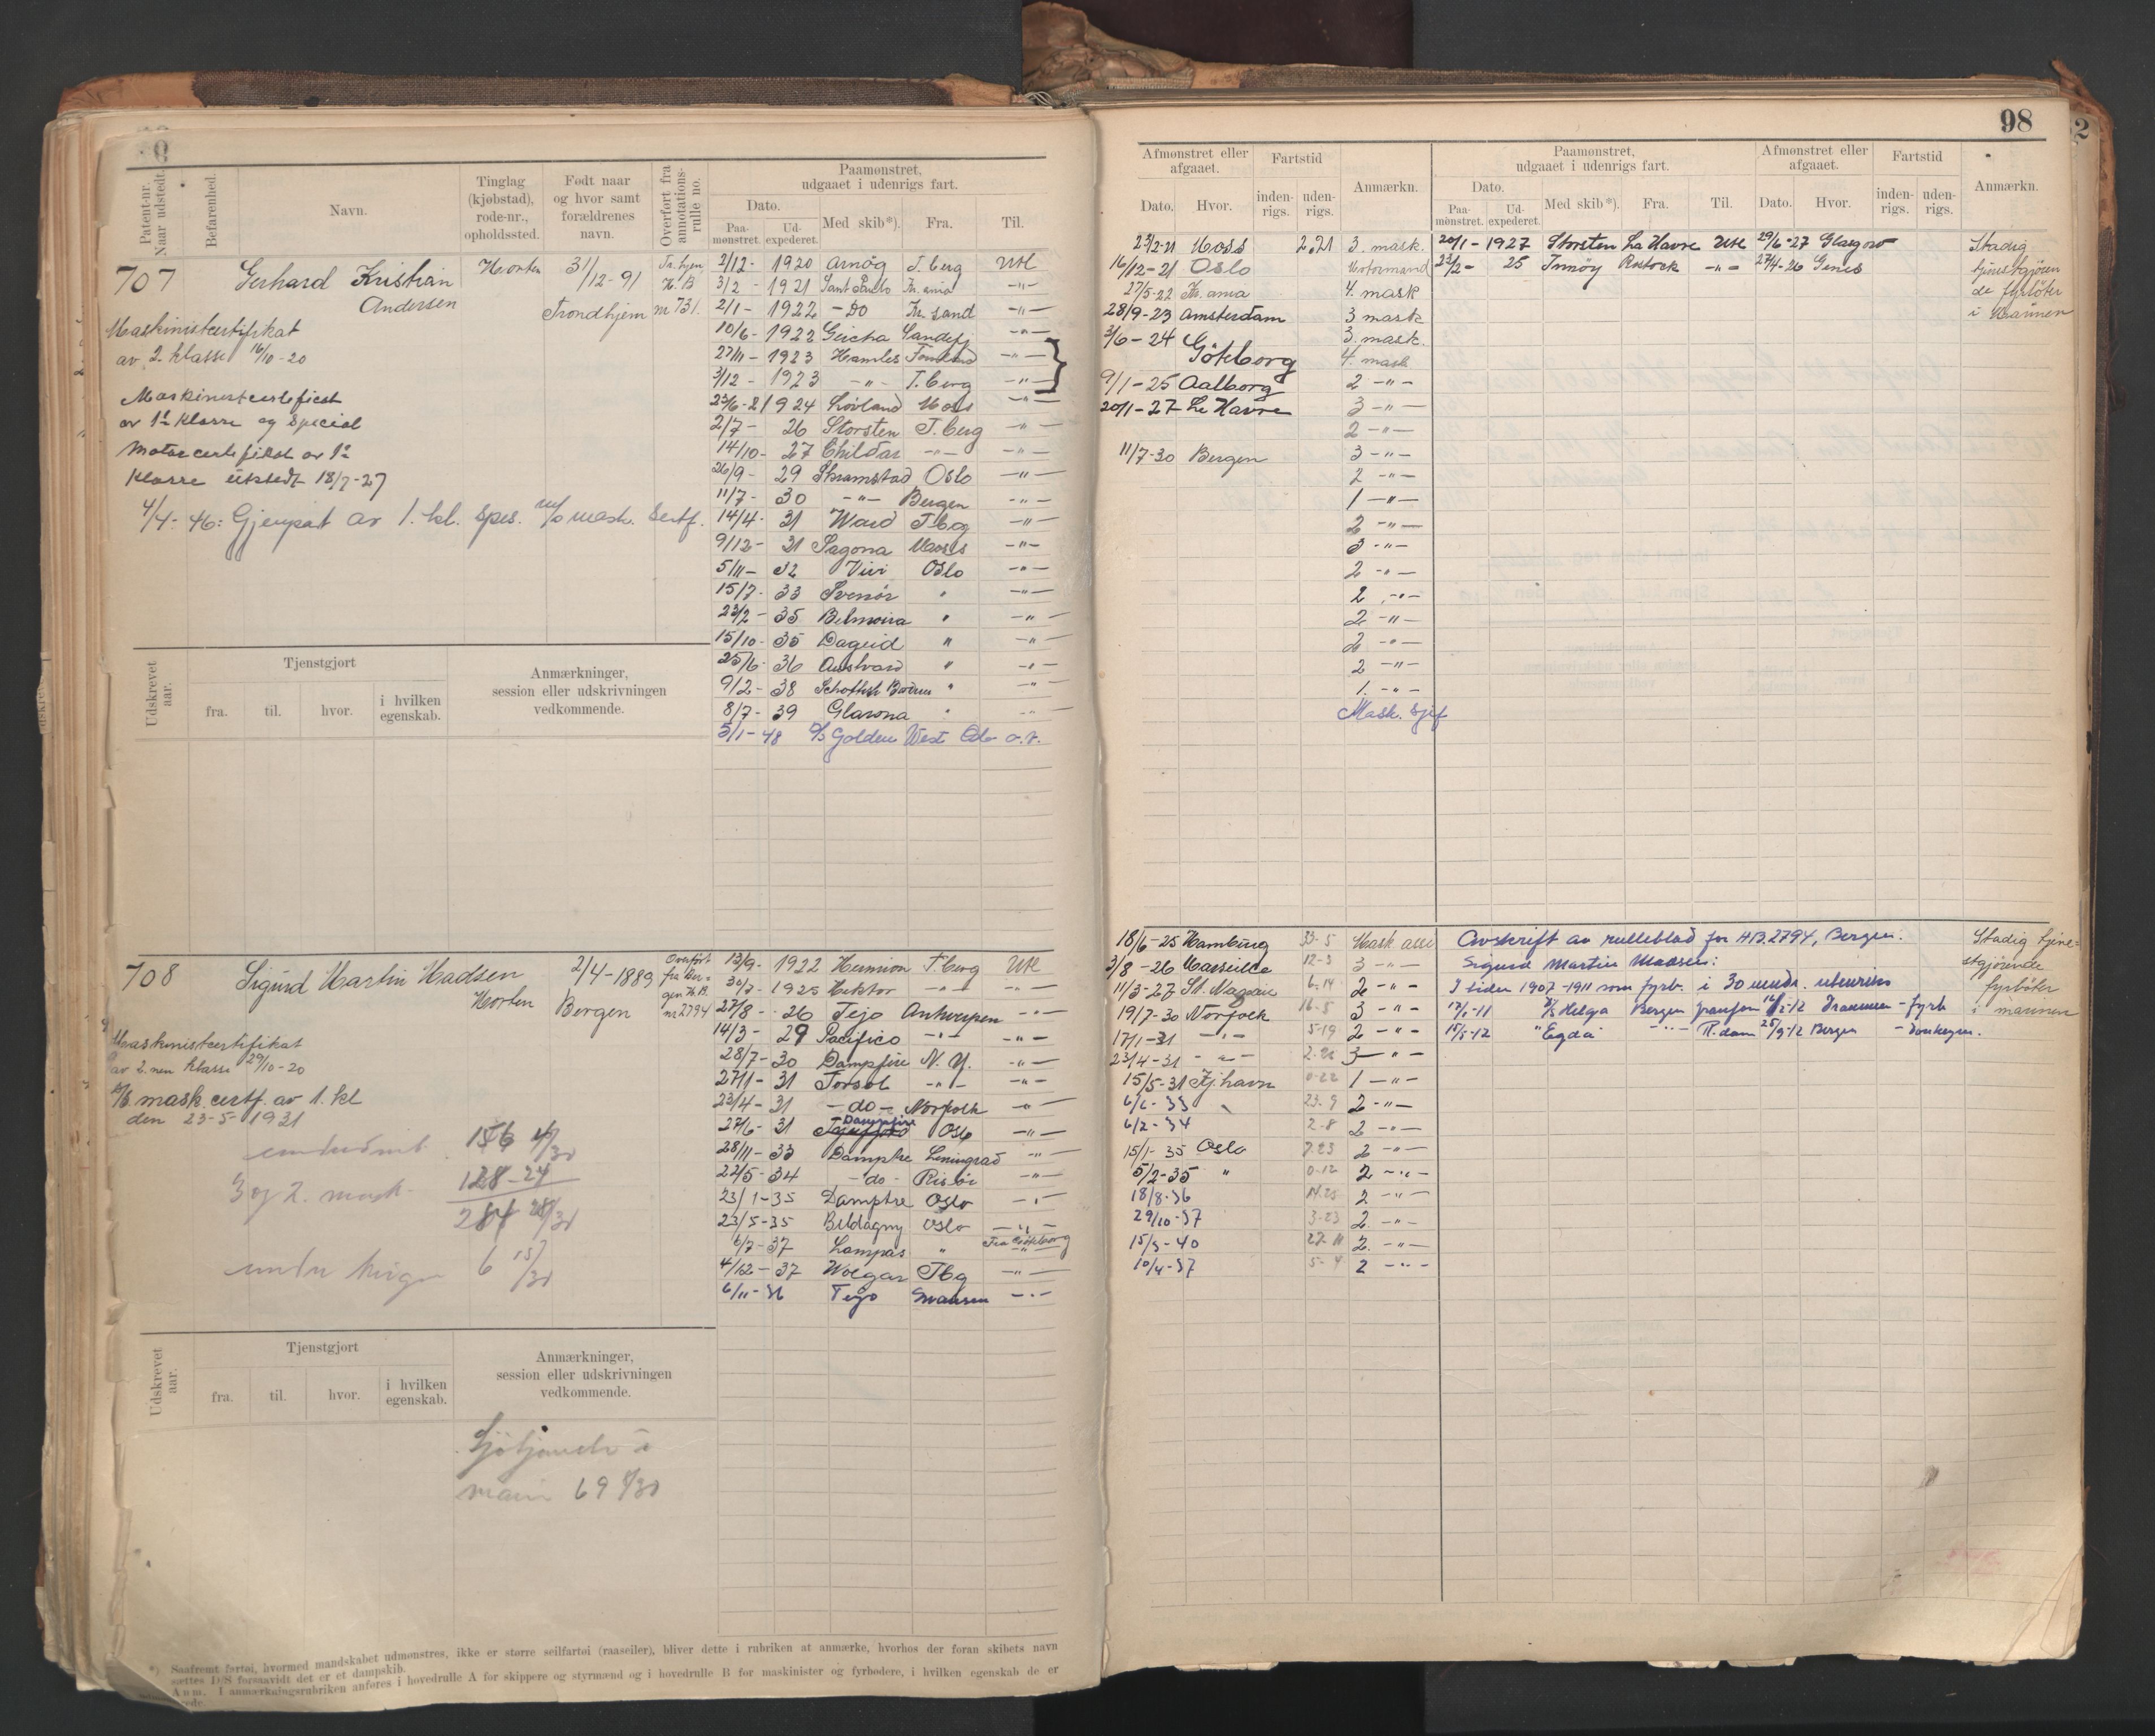 98
Patent-nr. Naar udstedt.
Befarenhed.
Navn.
Tinglag (kjøbstad), rode-nr., opholdssted.
Født naar og hvor samt forældrenes navn.
Overført fra annotations-rulle no.
Paamønstret, udgaaet i udenrigs fart.
Dato.
Paa-mønstret.
Ud-expederet.
Med skib*).
Fra.
Til.
Afmønstret eller afgaaet.
Dato.
Hvor.
Fartstid
inden-rigs.
uden-rigs.
Anmærkn.
Paamønstret, udgaaet i udenrigs fart.
Dato.
Paa-mønstret.
Ud-expederet.
Med skib*).
Fra.
Til.
Afmønstret eller afgaaet.
Dato.
Hvor.
Fartstid
inden-rigs.
uden-rigs.
Anmærkn.
707
Gerhard Kristian Andersen
Horten
31/12-91
Trondhjem
Tr.hjem H.B nr 731.
Maskinistcertifikat
av 2. klasse 16/10-20
Maskinistcertifikat
av 1ste Klasse og Special
Motorcertifikat av 1ste
Klasse utstedt 18/7-27
4/4-46: Gjenpat av 1. kl. spes. m/o mask. sertf.
2/12- 1920 Arnög T.berg Utl
3/2 - 1921 Sant Paulo Kr.ania -"-
2/1 - 1922 - Do Kr.sand -"-
10/6- 1922 Geisha Sandefj -"-
27/11- 1923 Hamlet -"-
3/12 - 1923 -"- T.berg -"-
23/6-21924 Lövland Moss -"-
2/7- 26 Storsten T.berg -"-
14/10- 27 Childar -"- -"-
26/9- 29 Skramstad Oslo -"-
11/7- 30 -"- Bergen -"-
14/4- 31 Ward Tbg -"-
9/12- 31 Sagona Moss -"-
5/11- 32 Vivi Oslo -"-
15/7- 33 Svenör " -"-
23/2- 35 Belmoira " -"-
15/10- 35 Dageid " -"-
25/6- 36 Austvard " -"-
9/2- 38 " -"-
8/7- 39 Glarona " -"-
5/1-48 D/S Golden West Oslo
23/2-21 Moss 2.21 3. mask.
16/12-21 Oslo Motormand
27/5-22 Kr.ania 4. mask
28/9-23 Amsterdam 3 mask
3/6-24 Göteborg 3. mask.
4. mask
9/1-25 Aalborg 2 -"-
20/1-27 Le Havre 3 -"-
2 -"-
11/7-30 Bergen 3 -"-
2 -"-
1 -"-
2 -"-
3 -"-
2 -"-
2 -"-
2 -"-
2 -"-
2 -"-
1. -"-
Mask. sjef
20/1- 1927 Storsten Le Havre Utl 29/6-27 Glasgow
23/2- 25 Innöy Rostock -"- 27/4-26 Genes
Stadig
tjenestgjören
de fyrböter
i Marinen
Udskrevet aar.
Tjenstgjort
fra.
til.
hvor.
i hvilken egenskab.
Anmærkninger, session eller udskrivningen vedkommende.
708
Sigurd Martin Madsen
Horten
2/4-1889
Bergen
Overført fra Bergen H.B. nr 2794
Maskinistcertifikat
av 2.nen klasse 29/10-20
D/S mask. certf. av 1. kl
den 23-5 1931
156 4/30
3 og 2. mask. 128-24
284 28/30
6 15/30
13/9- 1922 Hermion T.berg Utl
30/7- 1925 Hektor -"- -"-
27/8- 26 Tejo Antwerpen -"-
14/3- 29 Pacifico -"- -"-
28/7- 30 Dampfire N.Y. -"-
27/1- 31 Torsol -"- -"-
23/4- 31 -do- Norfolk -"-
27/6- 31 Dampfire Oslo -"-
28/11- 33 Damptre Leningrad -"-
22/5-34 -do- Risör -"-
23/1-35 Damptre Oslo -"-
23/5-35 Beldagny Oslo -"-
6/7-37 Lampas " Fra Göteborg
4/12-37 Wolgar Tbg -"-
6/11-36 Tejo -"-
18/6-25 Hamburg 33-5 Mask ass
3/8-26 Marseille 12-3 3 -"-
11/3-27 St. Nazaire 6-14 2 -"-
19/7-30 Norfolk 16-5 3 -"-
17/1-31 -"- 5-19 2 -"-
23/4-31 -"- 3 -"-
15/5-31 Kj.havn 0-22 1 -"-
6/6-33 23.9 2 -"-
6/2-34 2-8 2 -"-
15/1-35 Oslo 7.23 2 -"-
5/2-35 " 0-12 2 -"-
18/8-36 14.25 2 -"-
29/10-37 3-23 2 -"-
15/3-40 27-11 2. -"-
10/4-37 5-4 2 -"-
Avskrift av rulleblad for HB.2794, Bergen.
Sigurd Martin Madsen:
I tiden 1907-1911 som fyrb. i 30 mndr. utenriks
17/1-11 D/S Helga Bergen 16/2-12 Drammen - fyrb
15/5-12 " Egda -"- R.dam 25/9-12 Bergen - donkeym.
Stadig tjene-
stgjørende
fyrböter
i marinen
Udskrevet aar.
Tjenstgjort
fra.
til.
hvor.
i hvilken egenskab.
Anmærkninger, session eller udskrivningen vedkommende.
Sjötjeneste i
marin 69 8/30
*) Saafremt fartøi, hvormed mandskabet udmønstres, ikke er større seilfartøi (raaseiler), bliver dette i rubriken at anmærke, hvorhos der foran skibets navn
sættes D/S forsaavidt det er et dampskib.
Anm. I anmærkningsrubriken anføres i hovedrulle A for skippere og styrmænd og i hovedrulle B for maskinister og fyrbødere, i hvilken egenskab de er